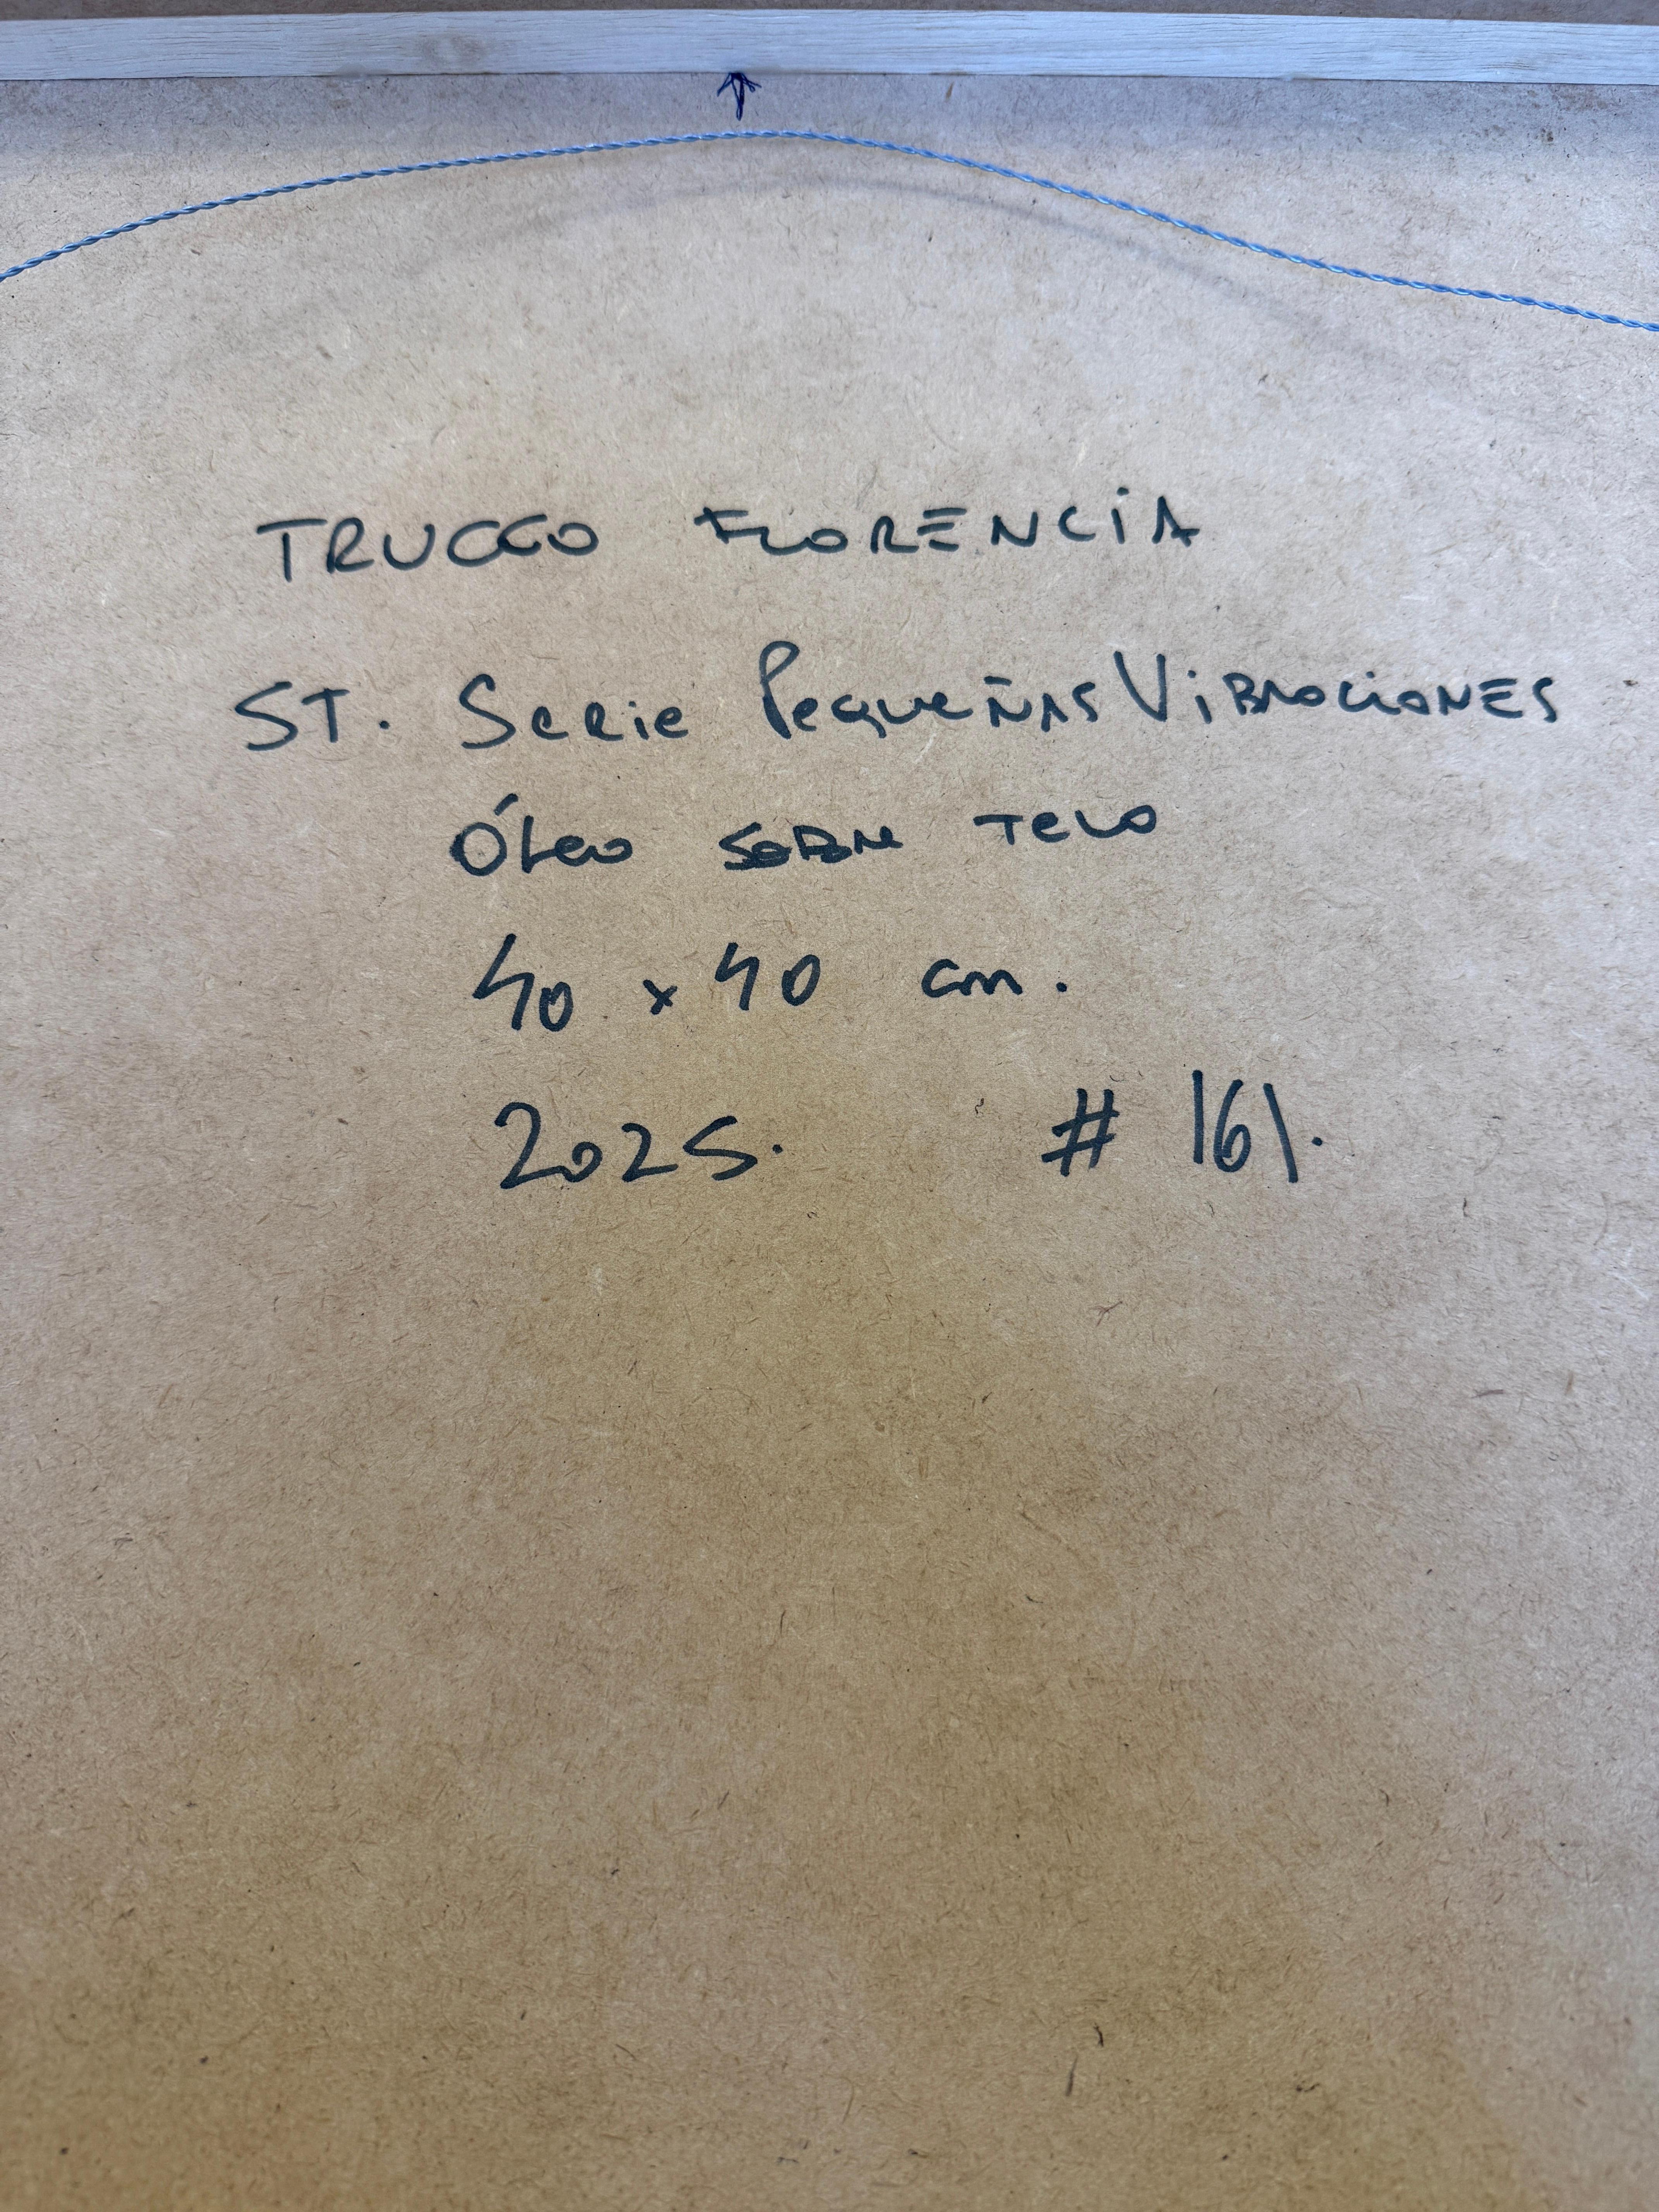 TRUCCO FLORENCIA
ST. Serie Pequeñas Vibraciones
Óleo sobre tela
40 x 40 cm.
2025. # 161.